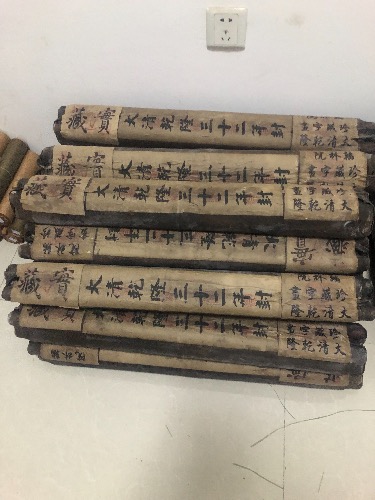 寶藏
大清乾隆三十二年封
珍藏字畫
寶藏
大清乾隆三十二年封
翰林院
珍藏字畫
大清乾隆
寶藏
大清乾隆三十二年封
寶藏
大清乾隆三十二年封
翰林院
珍藏字畫
大清乾隆
寶藏
大清乾隆三十二年封
珍藏字畫
大清乾隆
翰林院